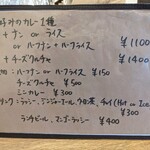 お好みのカレー1種
+ ナン or ライス
or ハーフナン+ハーフライス ¥1100
+ チーズクルチャ ¥1400
ハーフナン or ハーフライス ¥150
チーズクルチャ ¥500
ミニカレー ¥300
ラッシー、ジンジャーエール、ウーロン茶、チャイ(Hot or Ice)
¥300
ランチビール、マンゴーラッシー ¥400